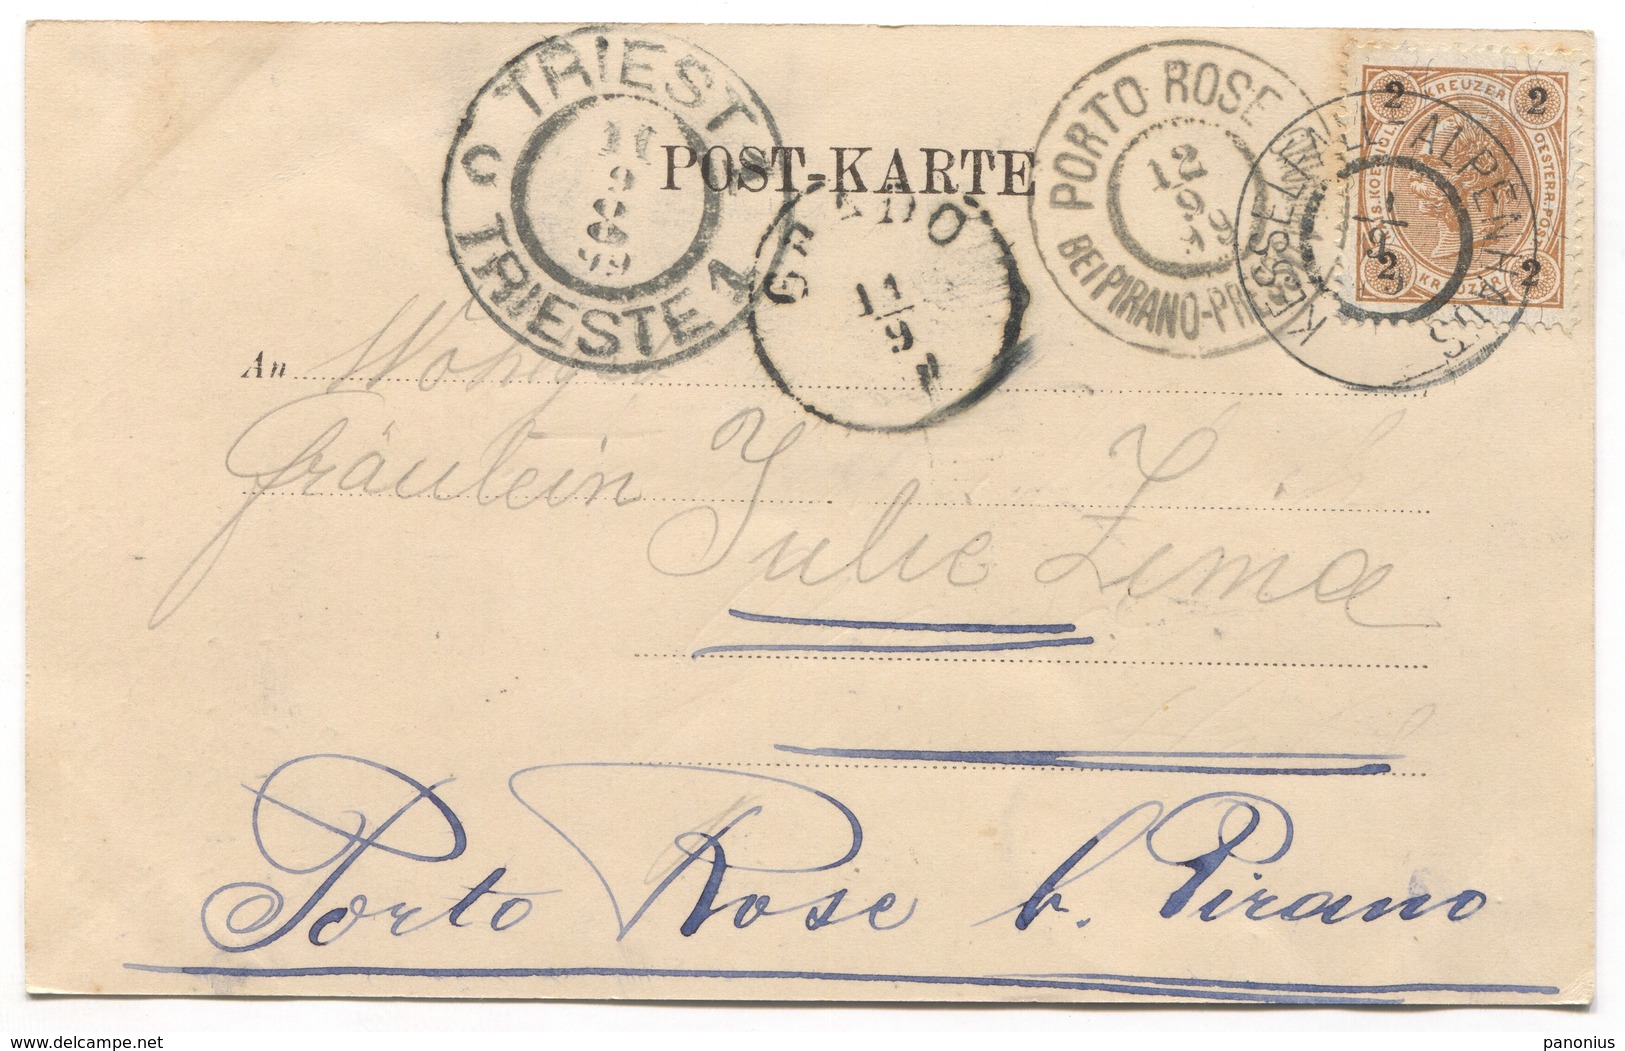 TRIEST
TRIESTE 1
11
9
99
POST-KARTE
GRADO
11
9
PORTO ROSE
BEI PIRANO-PR
12
9
99
KESSELFALL-ALPENHAUS
11
9
KREUZER
2 2
OESTERR. POST
2 2
KREUZER
An
Fräulein Julie Zima
Porto Rose b. Pirano
panonius